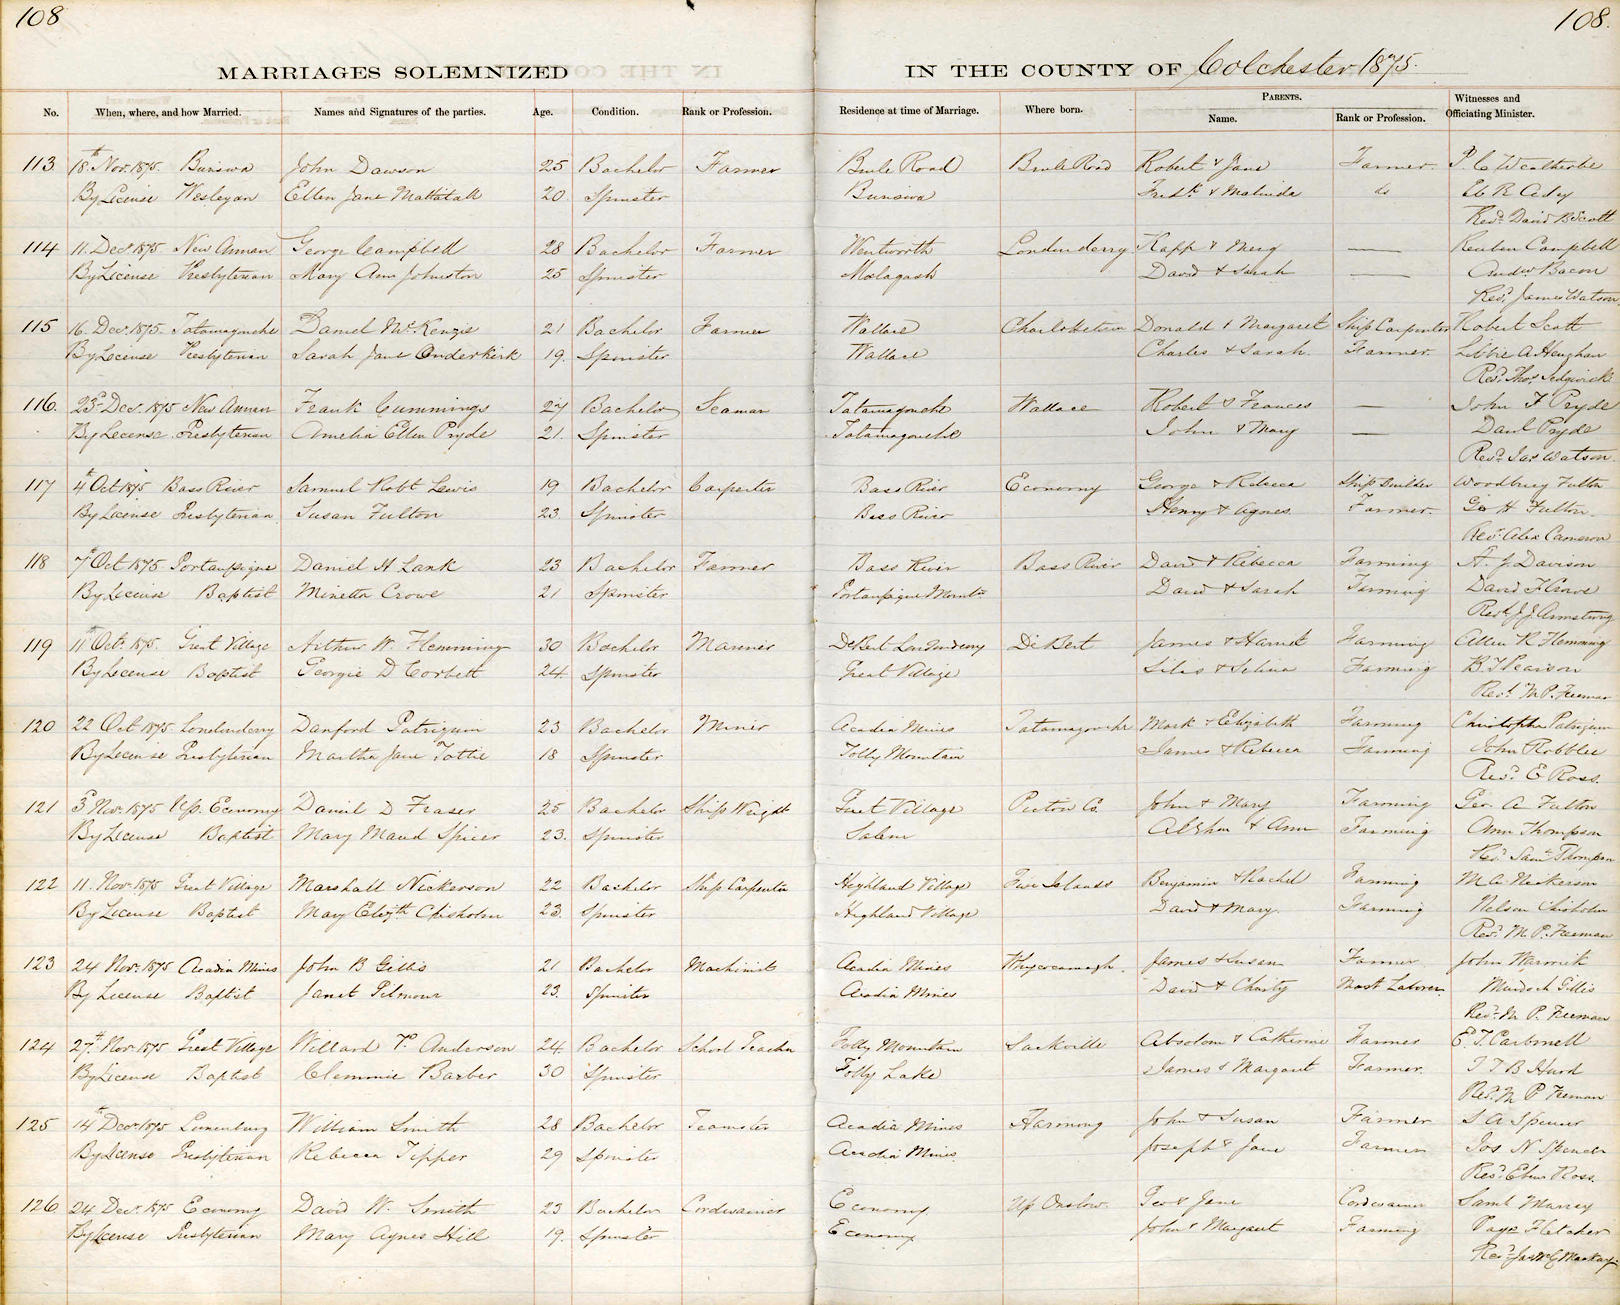 108
108.
MARRIAGES SOLEMNIZED IN THE COUNTY OF Colchester 1875.
No. When, where, and how Married. Names and Signatures of the parties. Age. Condition. Rank or Profession. Residence at time of Marriage. Where born. PARENTS. Name. Rank or Profession. Witnesses and Officiating Minister.
113 18th Nov. 1875. John Dawson 25 Bachelor Farmer Brule Road Brule Road Robert & Jane Farmer
By License Wesleyan Ellen Jane Mattatall 20 Spinster Fredk. & Malinda do
Revd. David B Scott
114 11. Decr 1875 New Annan George Campbell 28 Bachelor Farmer Wentworth Londonderry Reuben Campbell
By License Presbyterian Mary Ann Johnston 25 Spinster Malagash David & Sarah — Andw Bacon
Revd. James Watson
115 16. Decr. 1875. Tatamagouche Daniel McKenzie 21 Bachelor Farmer Wallace Donald & Margaret Ship Carpenter Robert Scott
By License Presbyterian Sarah Jane Onderkirk 19. Spinster Wallace Charles & Sarah. Farmer.
Revd. Thos. Sedgwick
116. 23d Decr. 1875 New Annan Frank Cummings 27 Bachelor Seaman Tatamagouche Wallace Robert & Frances — John F Pryde
By License Presbyterian Amelia Ellen Pryde 21. Spinster Tatamagouche John & Mary — Danl Pryde
Revd. Jas Watson.
117 4th Oct 1875 Bass River Samuel Robt Lewis 19 Bachelor Carpenter Bass River Economy George & Rebecca Ship Builder Woodbury Fulton
By License Presbyterian Susan Fulton 23 Spinster Bass River Henry & Agnes Farmer. Geo H Fulton
Revd. Alex Cameron
118 7th Oct 1875 Portaupique Daniel H Lank 23 Bachelor Farmer Bass River Bass River David & Rebecca Farming A. J Davison
By License Baptist Minetta Crowe 21 Spinster Portaupique Mountn David & Sarah Farming David F Crowe
Revd J J Armstrong
119 11th Octr. 1875. Great Village Arthur W. Flemming 30 Bachelor Mariner DeBert Londonderry DeBert James & Harriet Farming Allen R Flemming
By License Baptist Georgie D Corbett 24 Spinster Great Village Silas & Selina Farming
Revd. M P. Freeman
120 22 Oct 1875 Londonderry Danford Patriquin 23 Bachelor Miner Acadia Mines Tatamagouche Mark & Elizabeth Farming Christopher Patriquin
By License Presbyterian Martha Jane Tottie 18 Spinster Folly Mountain James & Rebecca Farming John Robblee
Revd. E Ross.
121 3d Nov. 1875 Up. Economy Daniel D Fraser 25 Bachelor Ship Wright Great Village Pictou Co. John & Mary Farming Geo. A Fulton
By License Baptist Mary Maud Spicer 23. Spinster Salem & Ann Farming Ann Thompson
Revd. Saml Thompson
122 11. Nov. 1875 Great Village Marshall Nickerson 22 Bachelor Ship Carpenter Highland Village Five Islands Benjamin & Rachel Farming M A Nickerson
By License Baptist Mary Elizth Chisholm 23. Spinster Highland Village David & Mary. Farming Nelson Chisholm
Revd. M. P. Freeman
123 24 Novr. 1875 Acadia Mines John B Gillis 21 Bachelor Machinist Acadia Mines Whycocomagh. James & Susan Farmer John Warnick
By License Baptist Janet Gilmour 23. Spinster Acadia Mines David & Charity Mast Laborer Murdoch Gillis
Revd. M P. Freeman
124 27th Nov 1875 Great Village Willard P. Anderson 24 Bachelor School Teacher Folly Mountain Sackville Absolom & Catherine Farmer
By License Baptist Clemmie Barber 30 Spinster Folly Lake James & Margaret Farmer.
Revd. M P Freeman
125 14th Decr 1875 William Smith 28 Bachelor Teamster Acadia Mines Harmony John & Susan Farmer S A Spencer
By License Presbyterian Rebecca Tipper 29 Spinster Acadia Mines. Joseph & Jane Farmer Jos N Spencer
Revd. Eben Ross.
126 24 Decr. 1875 Economy David W. Smith 23 Bachelor Cordwainer Economy Up Onslow. Geo & Jane Cordwainer Saml Murray
By License Presbyterian Mary Agnes Hill 19. Spinster Economy John & Margaret Farming Page Fletcher